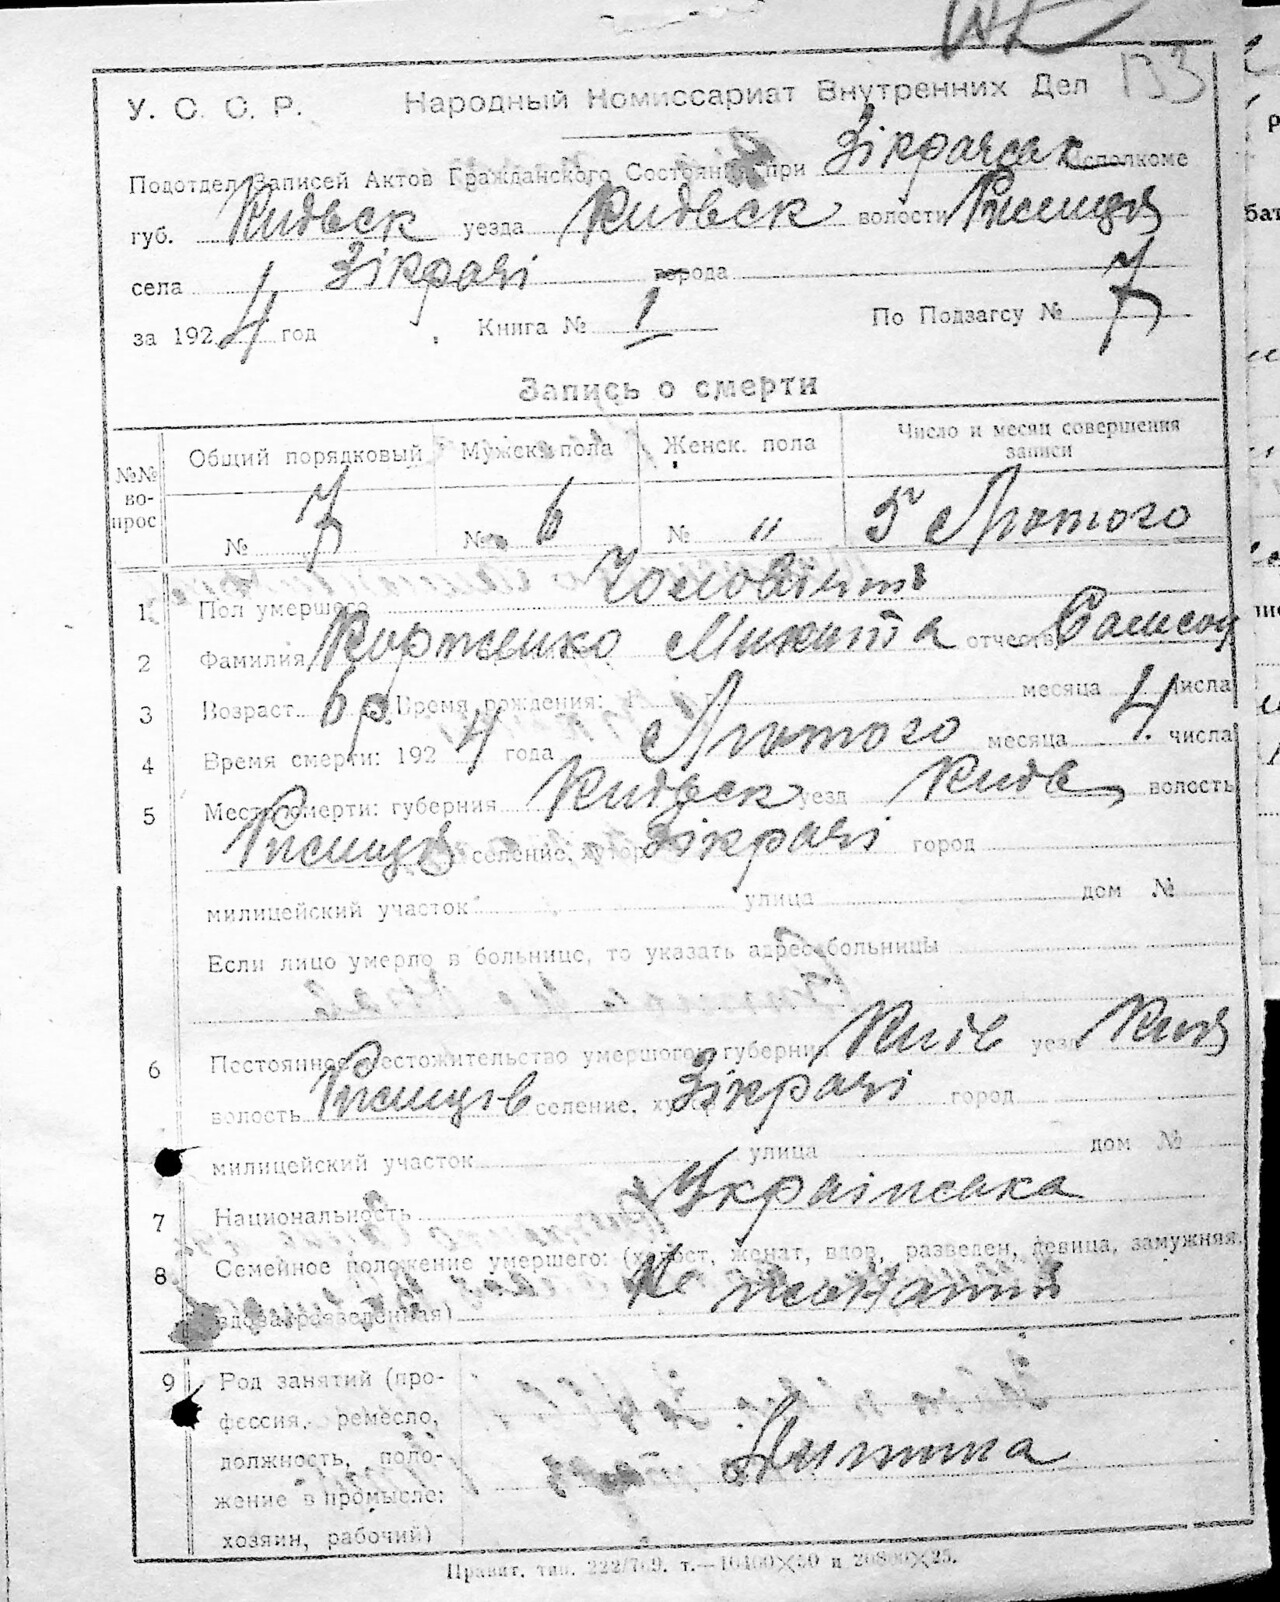 133
У. С. С. Р. Народный Номиссариат Внутренних Дел
Подотдел Записей Актов Гражданского Состояния при Зікрачськ Исполкоме
губ. Київськ уезда Київськ волости Ржищів
села Зікрачі города
за 1924 год Книга № 1 По Подзагсу № 7
Запись о смерти
№№ вопрос Общий порядковый Мужск. пола Женск. пола Число и месяц совершения записи
№ 7 № 6 № " 5 Лютого
1 Пол умершего Чоловіят
2 Фамилия Корженко Микита отчеств Самсон
3 Возраст 6 р. Время рождения: месяца числа
4 Время смерти: 1924 года Лютого месяца 4 числа
5 Место смерти: губерния Київськ уезд Київ волость
Ржищів селение, хутор Зікрачі город
милицейский участок улица дом №
Если лицо умерло в больнице, то указать адрес больницы
6 Постоянное местожительство умершого: губерния Київ уезд Київ
волость Ржищів селение, хутор Зікрачі город
милицейский участок улица дом №
7 Национальность Українська
8 Семейное положение умершего: (холост, женат, вдов, разведен, девица, замужняя,
вдова, разведенная) Не жонатий
9 Род занятий (про-
фессия, ремесло,
должность, поло-
жение в промысле:
хозяин, рабочий) Дитина
Правит. тип. 222/769. т.—10400×50 и 20800×25.